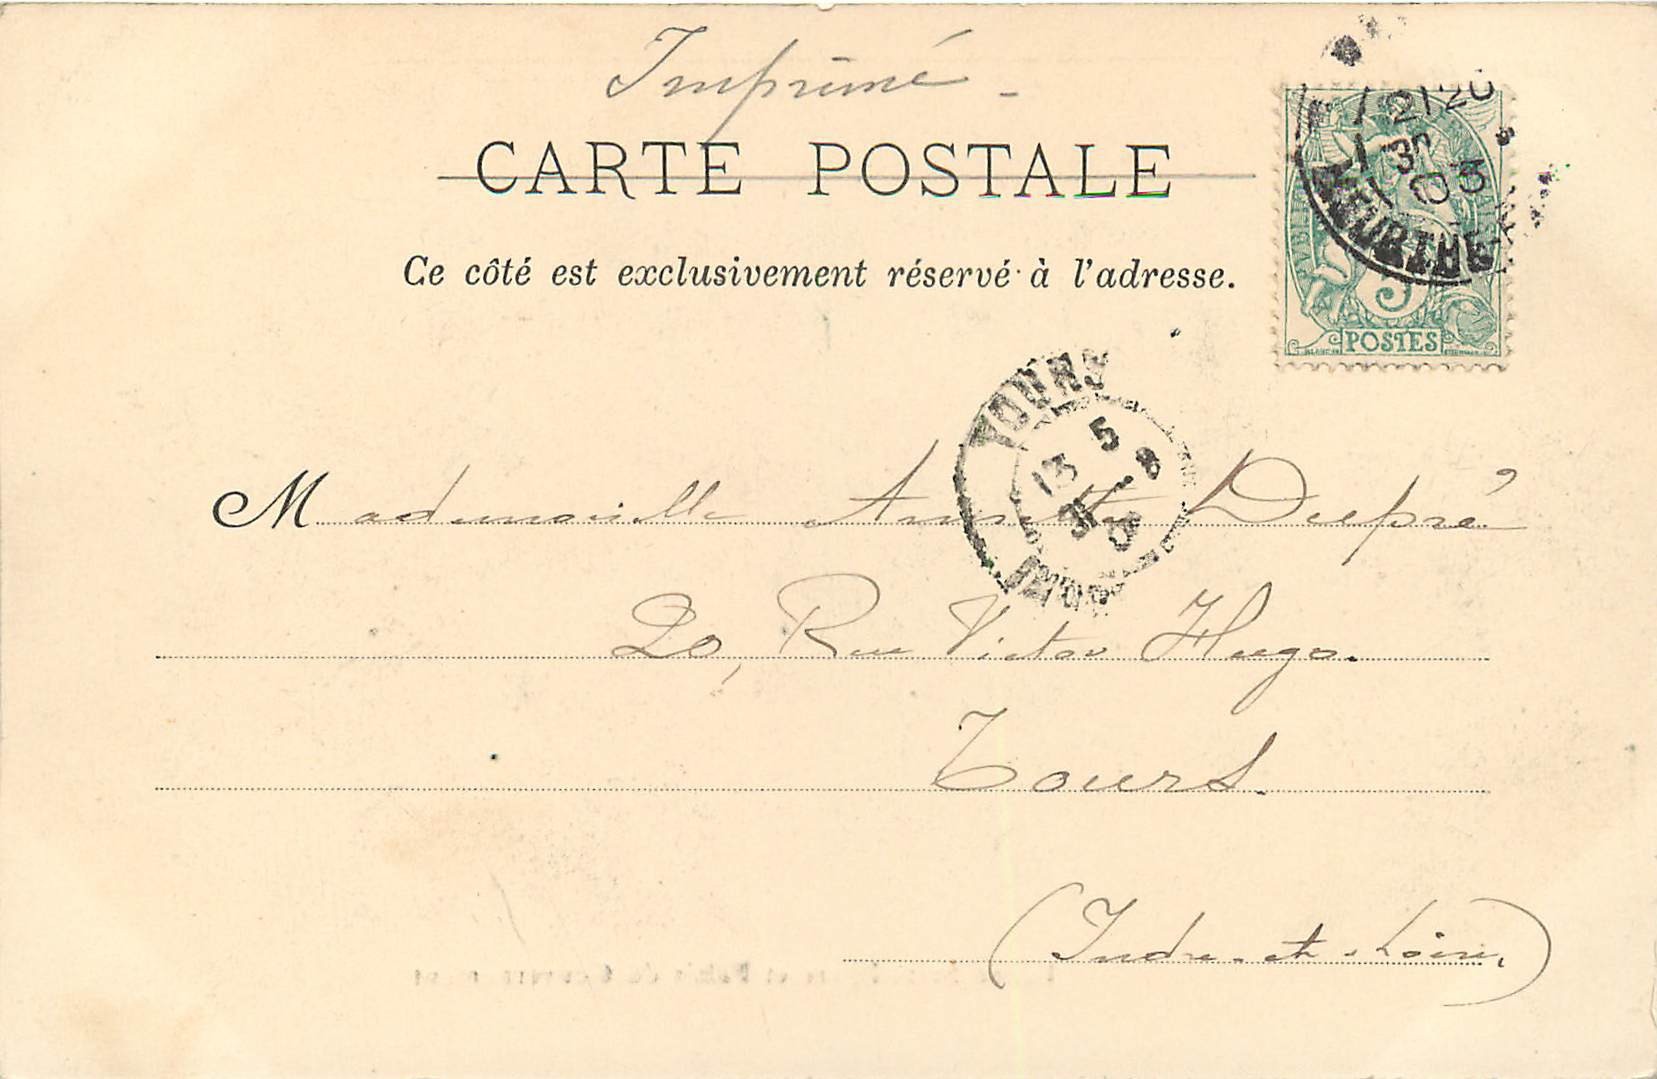 Imprimé -
CARTE POSTALE
Ce côté est exclusivement réservé à l'adresse.
21 20
3
MEURTHE
5
POSTES
TOURS
13 5
31 - 8
03
Mademoiselle Annette Dupré
20, Rue Victor Hugo.
Tours.
(Indre-et-Loire)